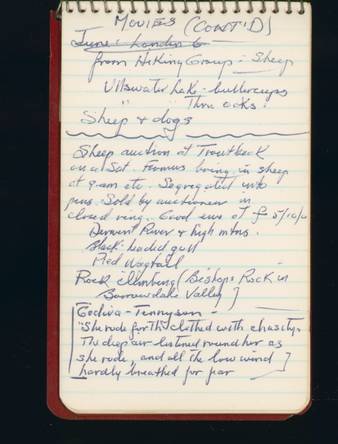 MOVIES (CONT'D)
June - London 6
from Hiking Group :- Sheep
Ullswater Lake - buttercups
" Thru oaks.
Sheep & dogs
Sheep auction at Troutbeck
on a Sat. Farmers bring in sheep
at 9 am etc. Segregated into
pens. Sold by auctioneer in
closed ring. Good ewe at £
Derwent River & high mtns.
Black-headed gull
Pied Wagtail
Rock climbing (Bishops Rock in
Borrowdale Valley]
[Godiva - Tennyson -
"She rode forth clothed with chasity.
The deep air listened round her as
she rode, and all the low wind
hardly breathed for fear]